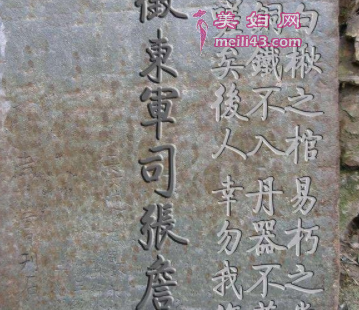 美妇网
meili43.com
白楸之棺易朽之
銅鐵不入丹器不
矣後人幸勿我
徵東軍司張詹